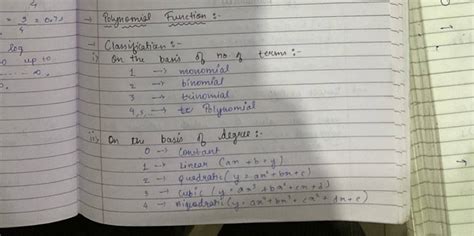 = 3 = 0.75
4
→ Polynomial Function :-
log
up to
→ Classification :-
i) On the basis of no of terms :-
1 → monomial
2 → binomial
3 → trinomial
4,5, → Polynomial
ii) On the basis of degree :-
0 → Constant
1 → Linear (ax + b = y)
2 → Quadratic (y = ax² + bx + c)
3 → Cubic (y = ax³ + bx² + cx + d)
4 → Biquadratic (y = ax⁴ + bx³ + cx² + dx + e)